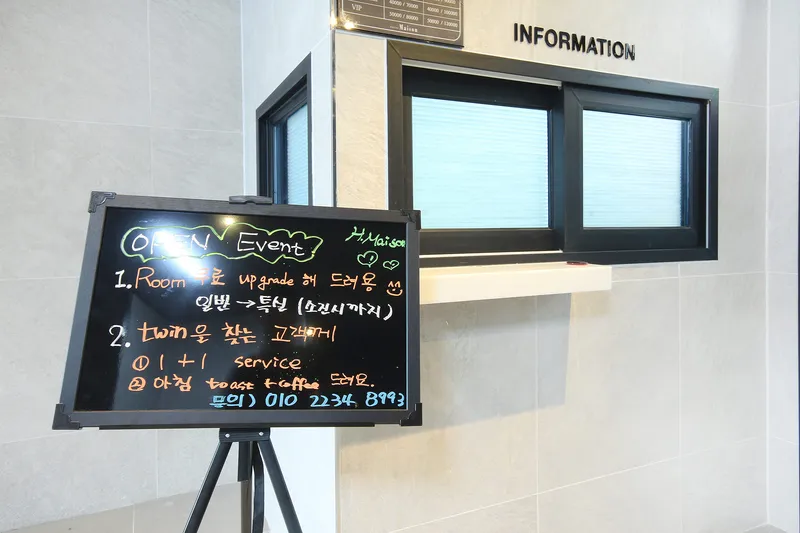 VIP
30000 / 80000
50000 / 110000
Maison
INFORMATION
OPEN Event
H.Maison
1. Room 무료 upgrade 해 드려용
일반 → 특실 (소진시까지)
2. twin을 찾는 고객께
① 1 + 1 service
② 아침 toast + coffee 드려요.
문의) 010 2234 8993